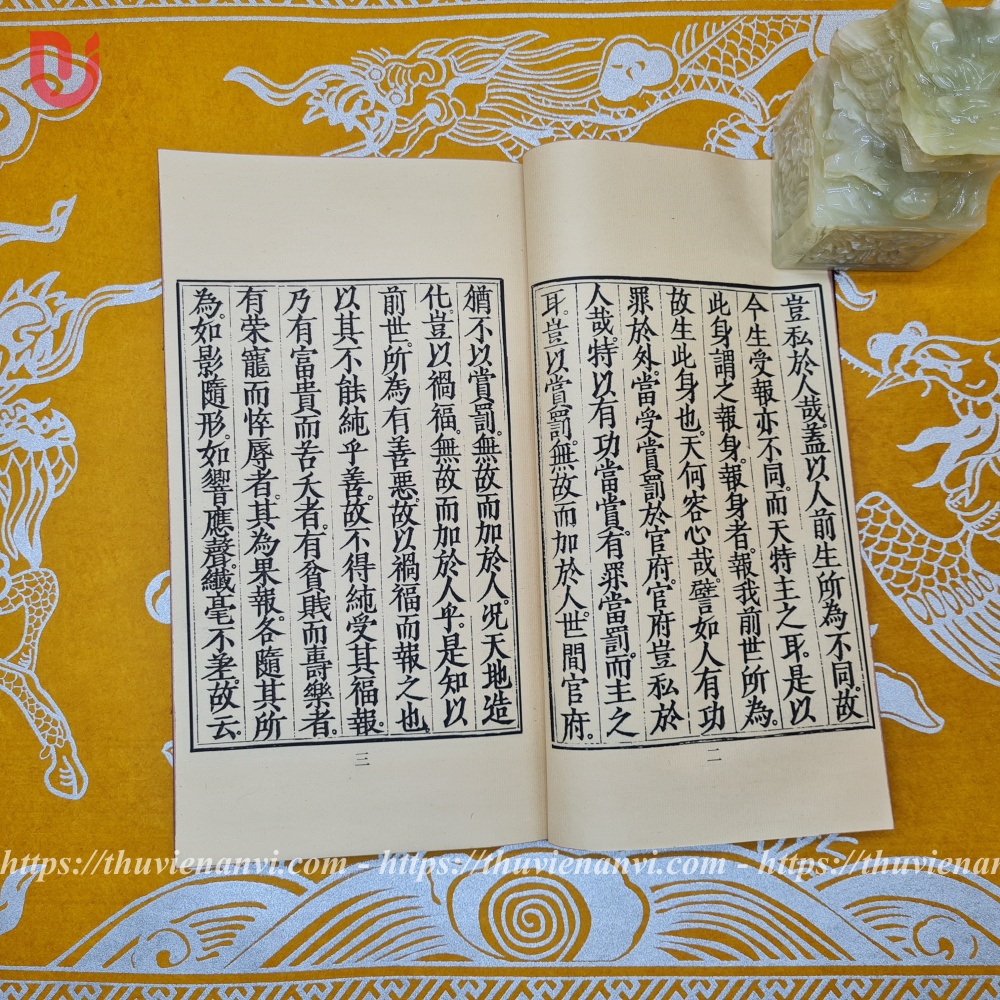 豈私於人哉。蓋以人前生所為不同。故
今生受報亦不同。而天特主之耳。是以
此身謂之報身。報身者。報我前世所為。
故生此身也。天何容心哉。譬如人有功
罪於外。當受賞罰於官府。官府豈私於
人哉。特以有功當賞。有罪當罰。而主之
耳。豈以賞罰。無故而加於人。世間官府。
二
猶不以賞罰。無故而加於人。况天地造
化。豈以禍福。無故而加於人乎。是知以
前世。所為有善惡。故以禍福而報之也。
以其不能純乎善。故不得純受其福報。
乃有富貴而苦夭者。有貧賤而壽樂者。
有榮寵而悴辱者。其為果報。各隨其所
為。如影隨形。如響應聲。纖毫不差。故云。
三
https://thuvienanvi.com - https://thuvienanvi.com - https://thuvienanvi